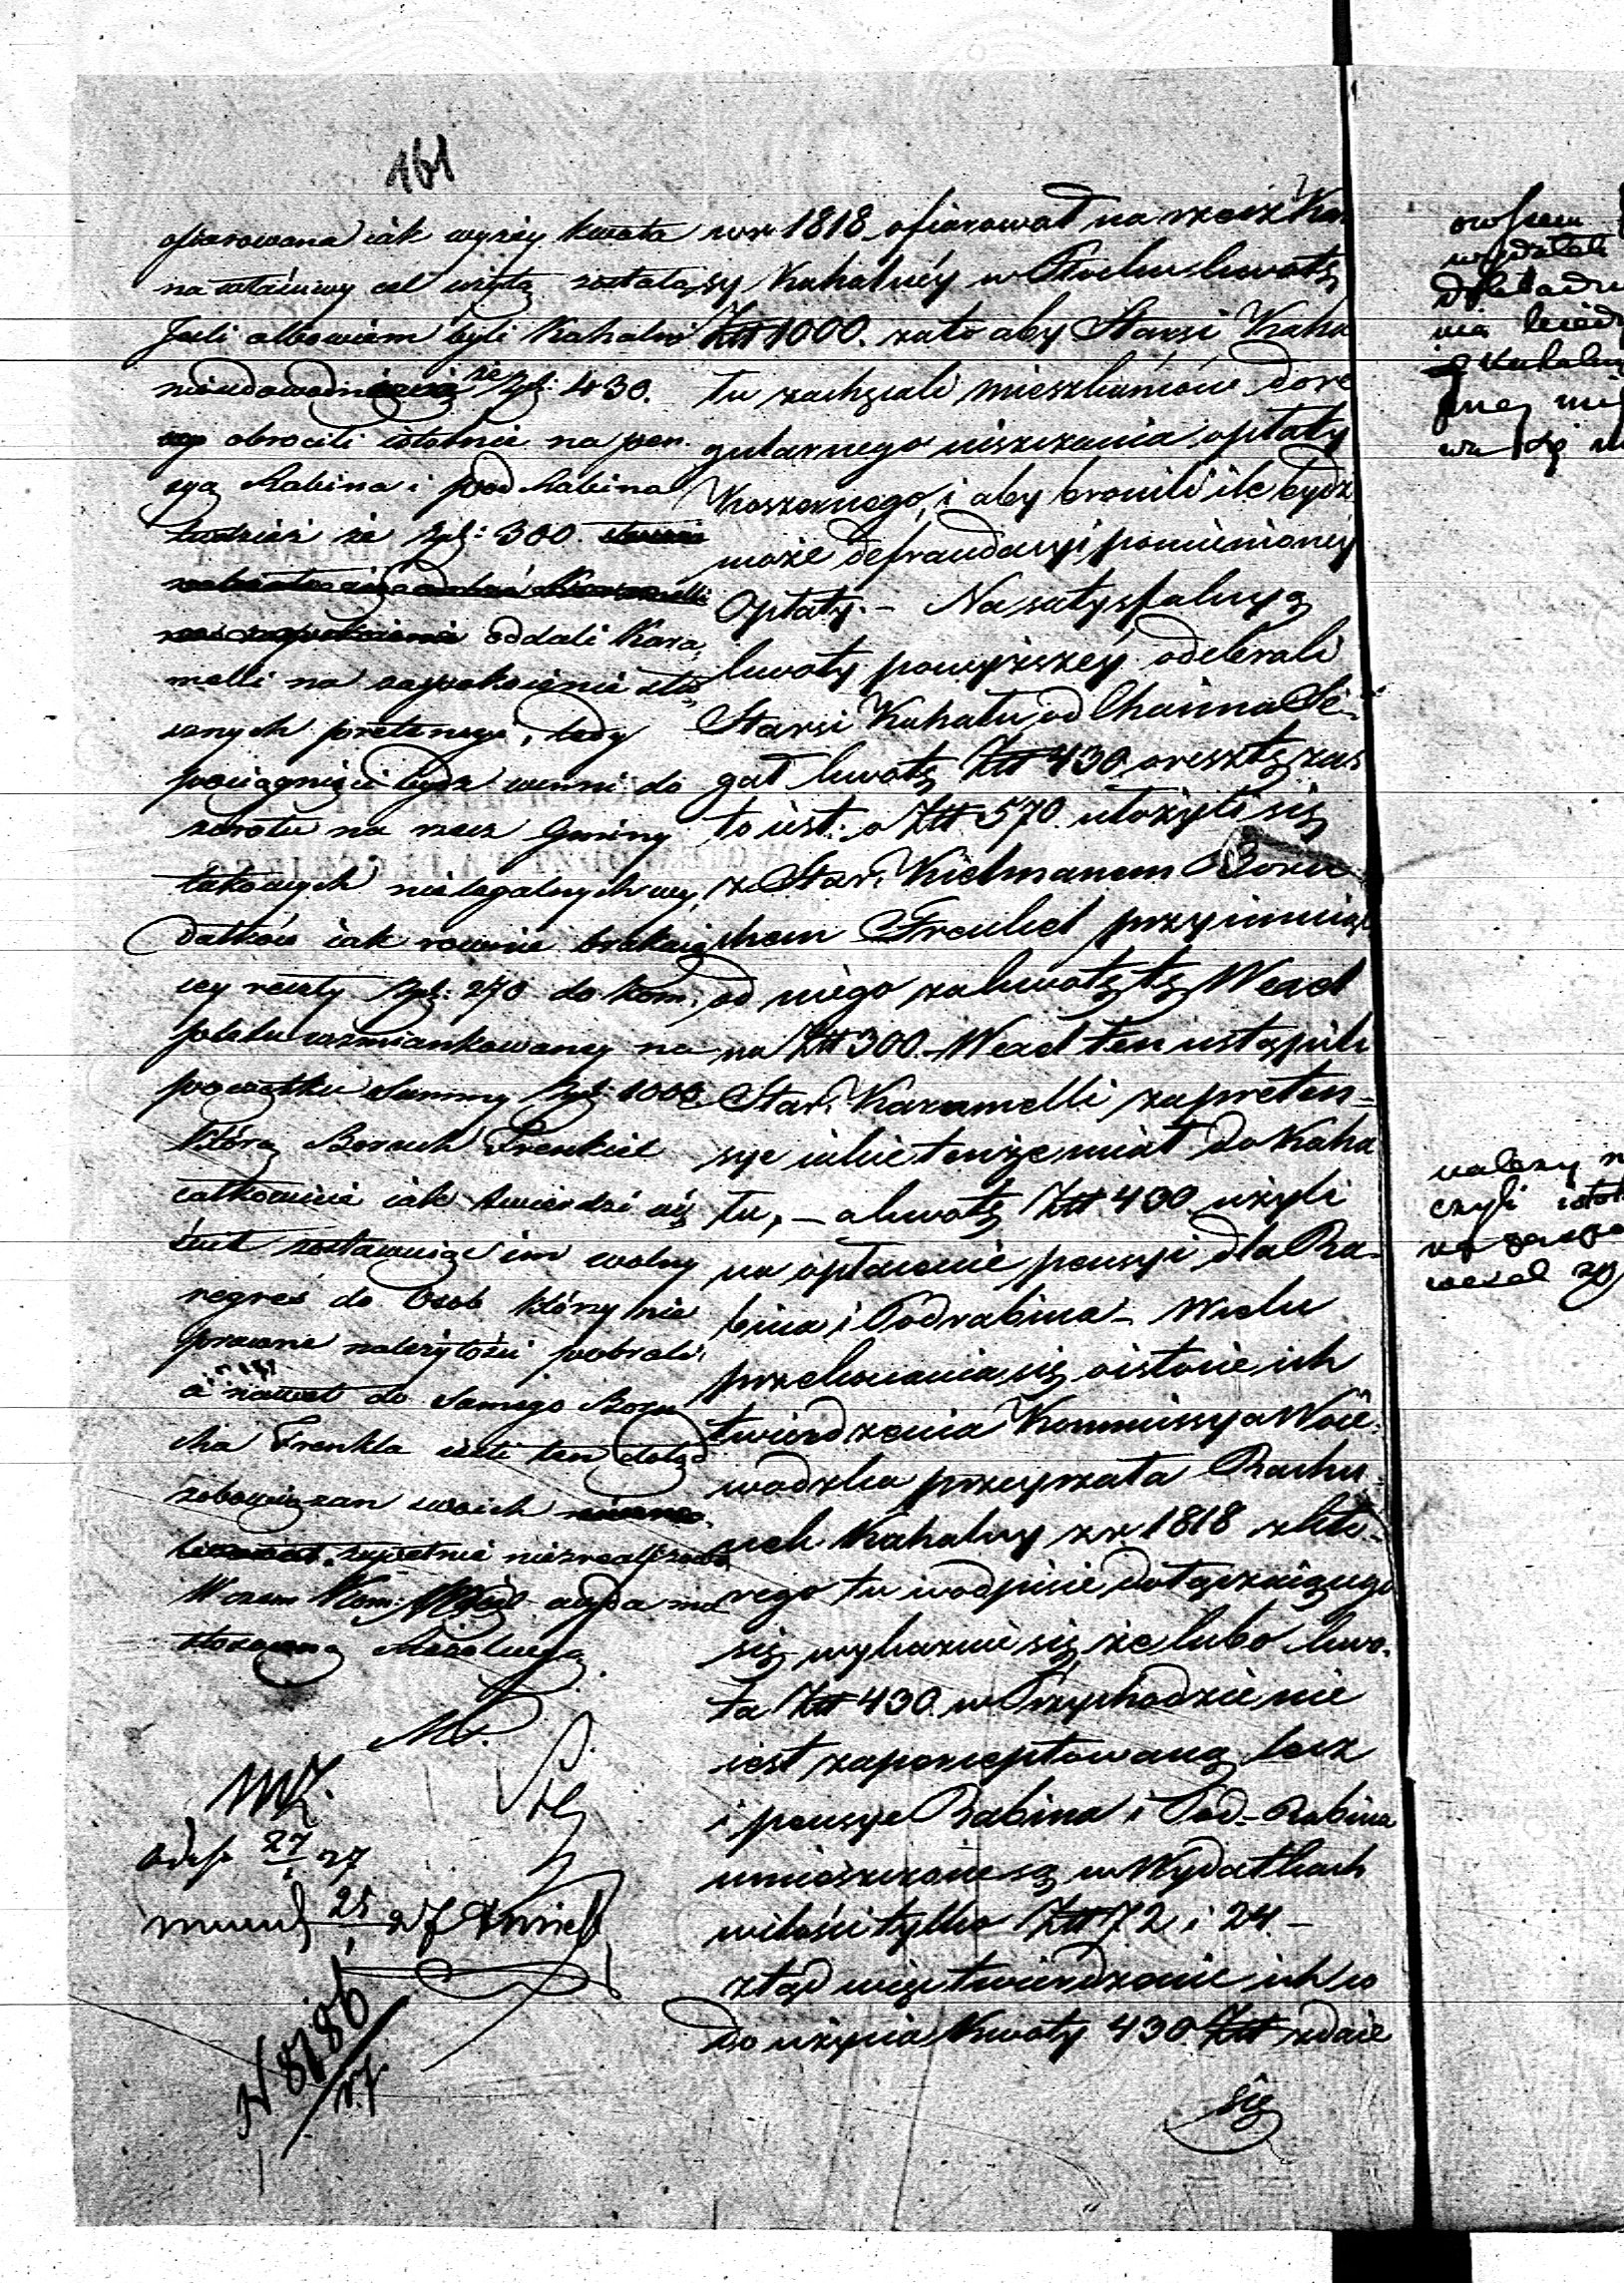 161
ofiarowana iak wyżey kwota
na właściwy cel użytą została
Jeśli albowiem byli Kahalni
nieudowodnią że Zpł: 430.
obrócili istotnie na pen
syą Rabina i pod Rabina
tudzież że Zpł: 300.
oddali Kara
melli na zaspokoienie
sznych pretensyi, tedy
pociągnięci bydź winni do
zwrotu na rzecz Gminy
takowych nielegalnych wy
datków iak równie brakuią
cey reszty Zpł: 270 do kom
pletu wzmiankowaney na
początku Summy Zpł: 1000
którą Boruch Frenkiel
całkowicie iak twierdzi
zostawuiąc im wolny
regres do Osob którzy nie
prawne należytości pobrali
a nawet do Samego Boru
cha Frenkla ieśli ten dotąd
zobowiązan swoich
zupełnie niezrealizował
W czem Kom: Woie: wyda
stosowną Rezolucyą
27 27
25 27
N 8186
27.
w r. 1818 ofiarował na rzecz Kas
sy Kahalnéy w Płocku kwotę
Złł 1000. zato aby Starsi Kaha
łu zachęcali mieszkańców do re
gularnego uiszczania opłaty
Koszernego, i aby bronili ile bydź
może defraudacyi pomienionéy
Opłaty. – Na satysfakcyą
kwoty powyższéy odebrali
Starsi Kahału od Chaima Se
gał kwotę Złł 430 o resztę zaś
to iest: o Złł 570 ułożyli się
z Star. Kielmanem Boru
chem Frenkiel przyimuiąc
od niego za kwotę tę Wexel
na Złł 300. – Wexel ten ustąpili
Star. Karamelli za preten=
sye iakie tenże miał do Kaha
łu, – a kwotę Złł 430 użyli
na opłacenie pensyi dla Ra=
bina i Podrabina – W celu
przekonania się o istocie ich
twierdzenia Kommissya Woie=
wodzka przeyrzała Rachu
nek Kahalny z r. 1818 z któ=
rego tu w odpisie dołączaiącego
się wykazuie się, że lubo kwo=
ta Złł 430. w Przychodzie nie
iest zapercyptowaną lecz
i pensye Rabina i Pod-Rabina
umieszczone są w Wydatkach
w ilości tylko Złł 72 i 24 –
ztąd więc twierdzenie ich co
do użycia Kwoty 430 Złł zdaie
się